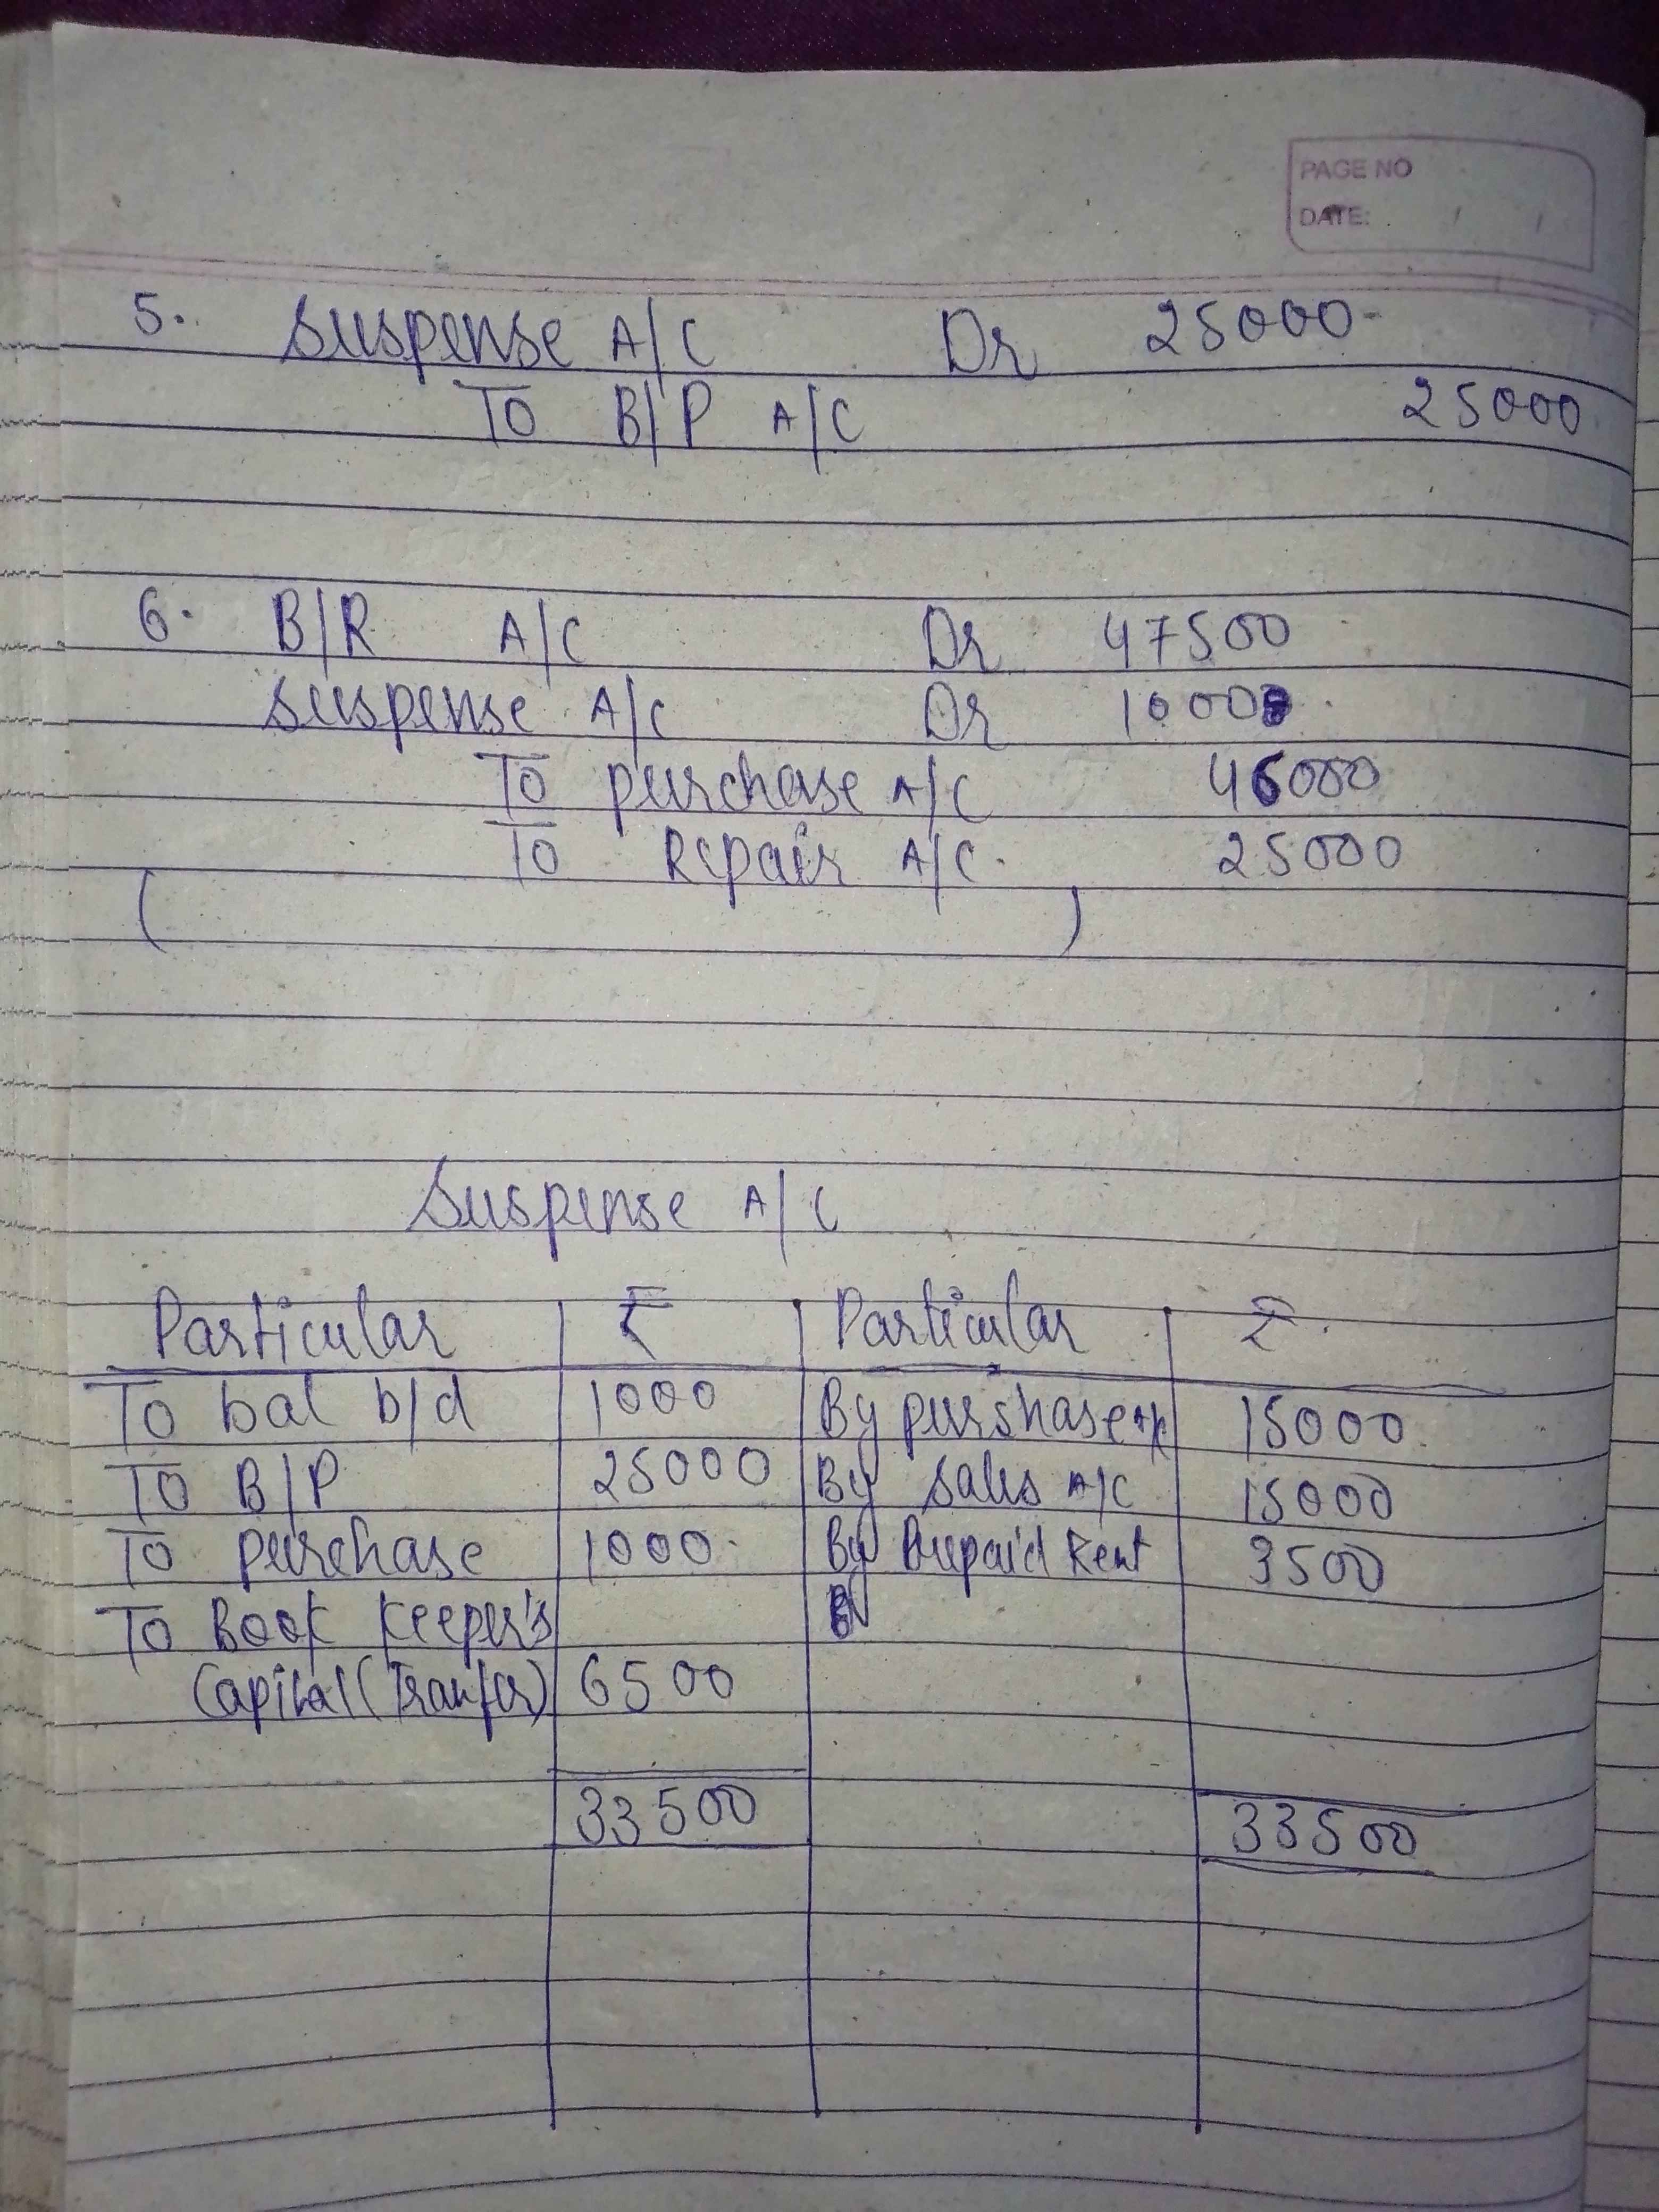 PAGE NO
DATE: / /
5. Suspense A/C Dr 25000
To B/P A/C 25000
6. B/R A/C Dr 47500
Suspense A/C Dr 1000
To purchase A/C 46000
To Repair A/C 25000
( )
Suspense A/C
Particular ₹ Particular ₹
To bal b/d 1000 By purshase A/c 15000
To B/P 25000 By sales A/C 15000
To purchase 1000 By Prepaid Rent 3500
To Book Keeper's
Capital (Tranfer) 6500
33500 33500